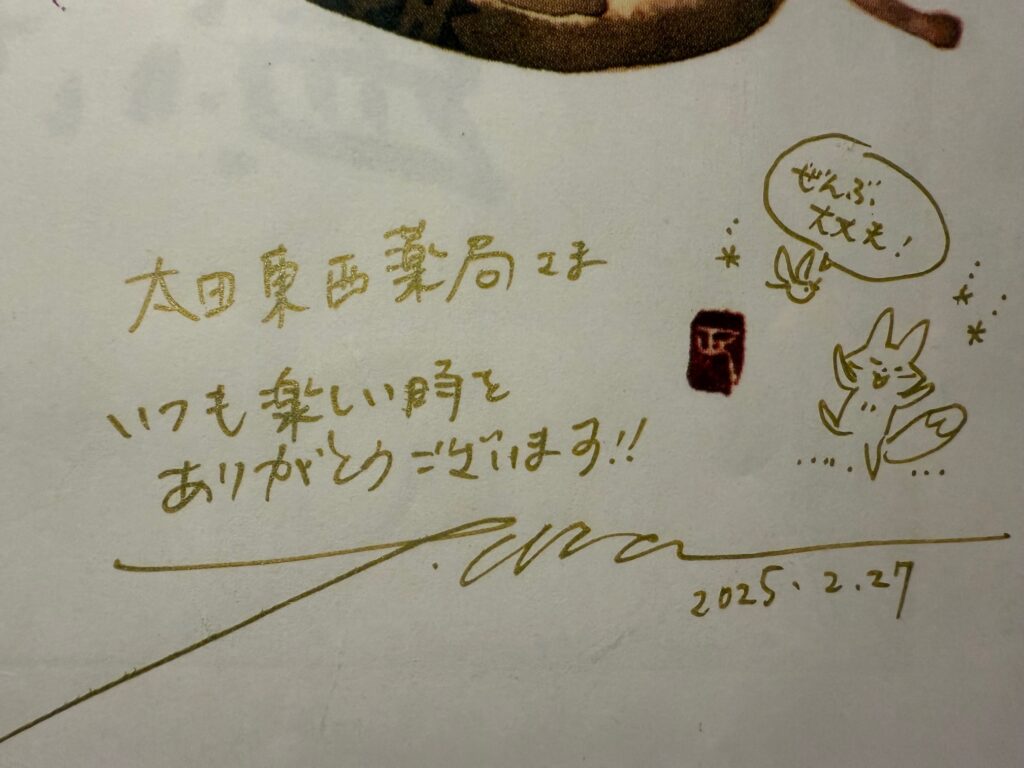 太田東西薬局さま
いつも楽しい時を
ありがとうございます!!
ぜんぶ、
大丈夫!
2025.2.27